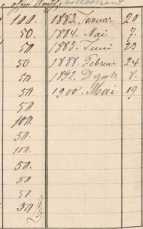 100. 1883. Januar 20
50. 1884. Mai 7.
50 1885. Juni 23
50 1888. Februar 24
50 1892. 8.
50 1900. Mai 19
50
100.
50.
100.
50.
50.
50
50